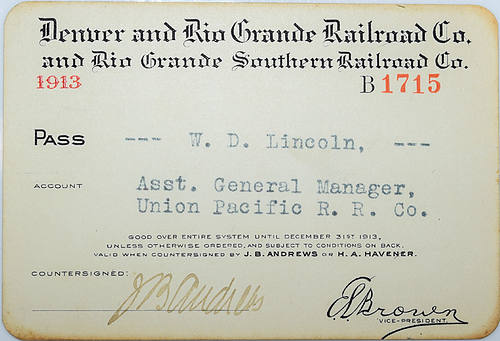 Denver and Rio Grande Railroad Co.
and Rio Grande Southern Railroad Co.
1913 B 1715
PASS --- W. D. Lincoln, ---
ACCOUNT Asst. General Manager,
Union Pacific R. R. Co.
GOOD OVER ENTIRE SYSTEM UNTIL DECEMBER 31ST 1913,
UNLESS OTHERWISE ORDERED, AND SUBJECT TO CONDITIONS ON BACK.
VALID WHEN COUNTERSIGNED BY J. B. ANDREWS OR H. A. HAVENER.
COUNTERSIGNED:
J B Andrews
E Brown
VICE-PRESIDENT.